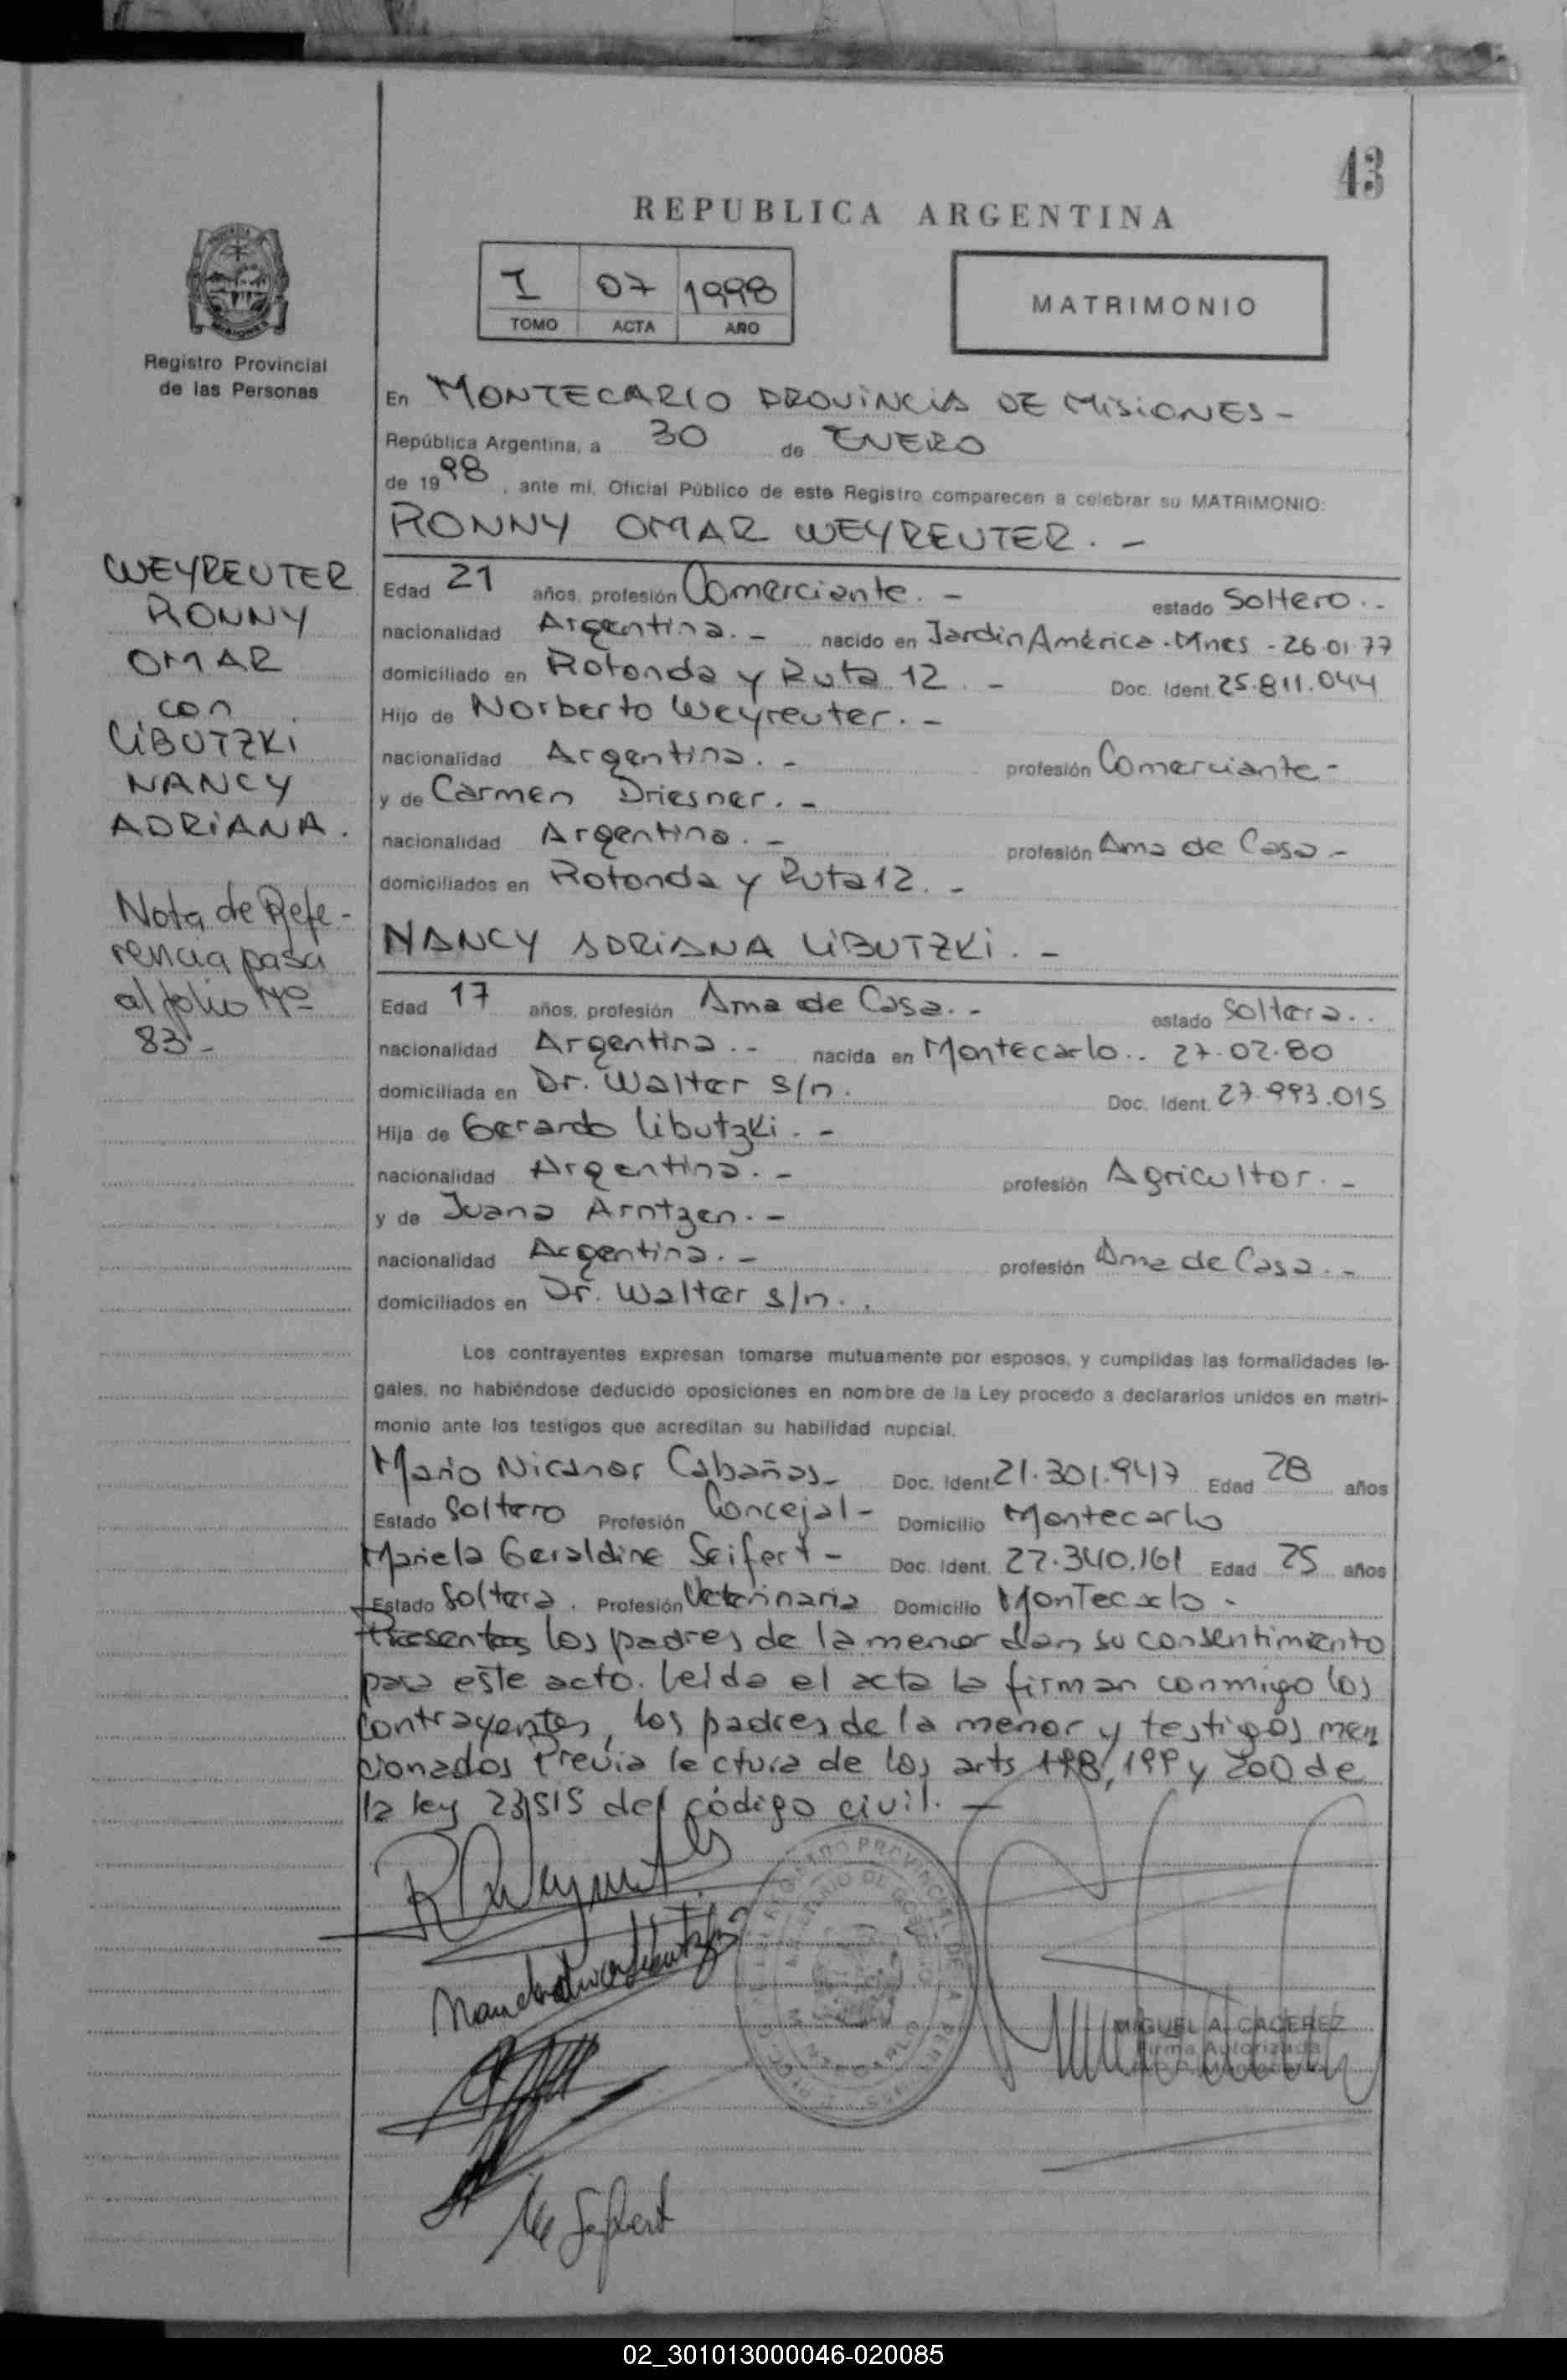 43
REPUBLICA ARGENTINA
I 07 1998
TOMO ACTA AÑO
MATRIMONIO
Registro Provincial
de las Personas
En MONTECARLO PROVINCIA DE MISIONES -
República Argentina, a 30 de ENERO
de 1998, ante mi, Oficial Público de este Registro comparecen a celebrar su MATRIMONIO:
RONNY OMAR WEYREUTER. -
WEYREUTER
RONNY
OMAR
con
LIBUTZKI
NANCY
ADRIANA.
Nota de Refe-
rencia pasa
al folio Nº
83-
Edad 21 años, profesión Comerciante. - estado Soltero..
nacionalidad Argentina. - nacido en Jardin América - Mnes - 26.01.77
domiciliado en Rotonda y Ruta 12. - Doc. Ident. 25.811.044
Hijo de Norberto Weyreuter. -
nacionalidad Argentina. - profesión Comerciante -
y de Carmen Driesner. -
nacionalidad Argentina. - profesión Ama de Casa -
domiciliados en Rotonda y Ruta 12. -
NANCY ADRIANA LIBUTZKI. -
Edad 17 años, profesión Ama de Casa. - estado Soltera..
nacionalidad Argentina. - nacida en Montecarlo.. 27.02.80
domiciliada en Dr. Walter s/n. Doc. Ident. 27.993.015
Hija de Gerardo Libutzki. -
nacionalidad Argentina. - profesión Agricultor. -
y de Juana Arntzen. -
nacionalidad Argentina. - profesión Ama de Casa. -
domiciliados en Dr. Walter s/n..
Los contrayentes expresan tomarse mutuamente por esposos, y cumplidas las formalidades le-
gales, no habiéndose deducido oposiciones en nombre de la Ley procedo a declararlos unidos en matri-
monio ante los testigos que acreditan su habilidad nupcial.
Mario Nicanor Cabañas - Doc. Ident. 21.301.947 Edad 28 años
Estado Soltero Profesión Concejal - Domicilio Montecarlo
Mariela Geraldine Seifert - Doc. Ident. 22.340.161 Edad 25 años
Estado Soltera. Profesión Veterinaria Domicilio Montecarlo -
Presentes los padres de la menor dan su consentimiento
para este acto. Leida el acta la firman conmigo los
contrayentes, los padres de la menor y testigos men
cionados Previa lectura de los arts 198, 199 y 200 de
la ley 23515 del código civil. -
REGISTRO PROVINCIAL DE LAS PERSONAS
MINISTERIO DE GOBIERNO
MIGUEL A. CACEREZ
Firma Autorizada
02_301013000046-020085